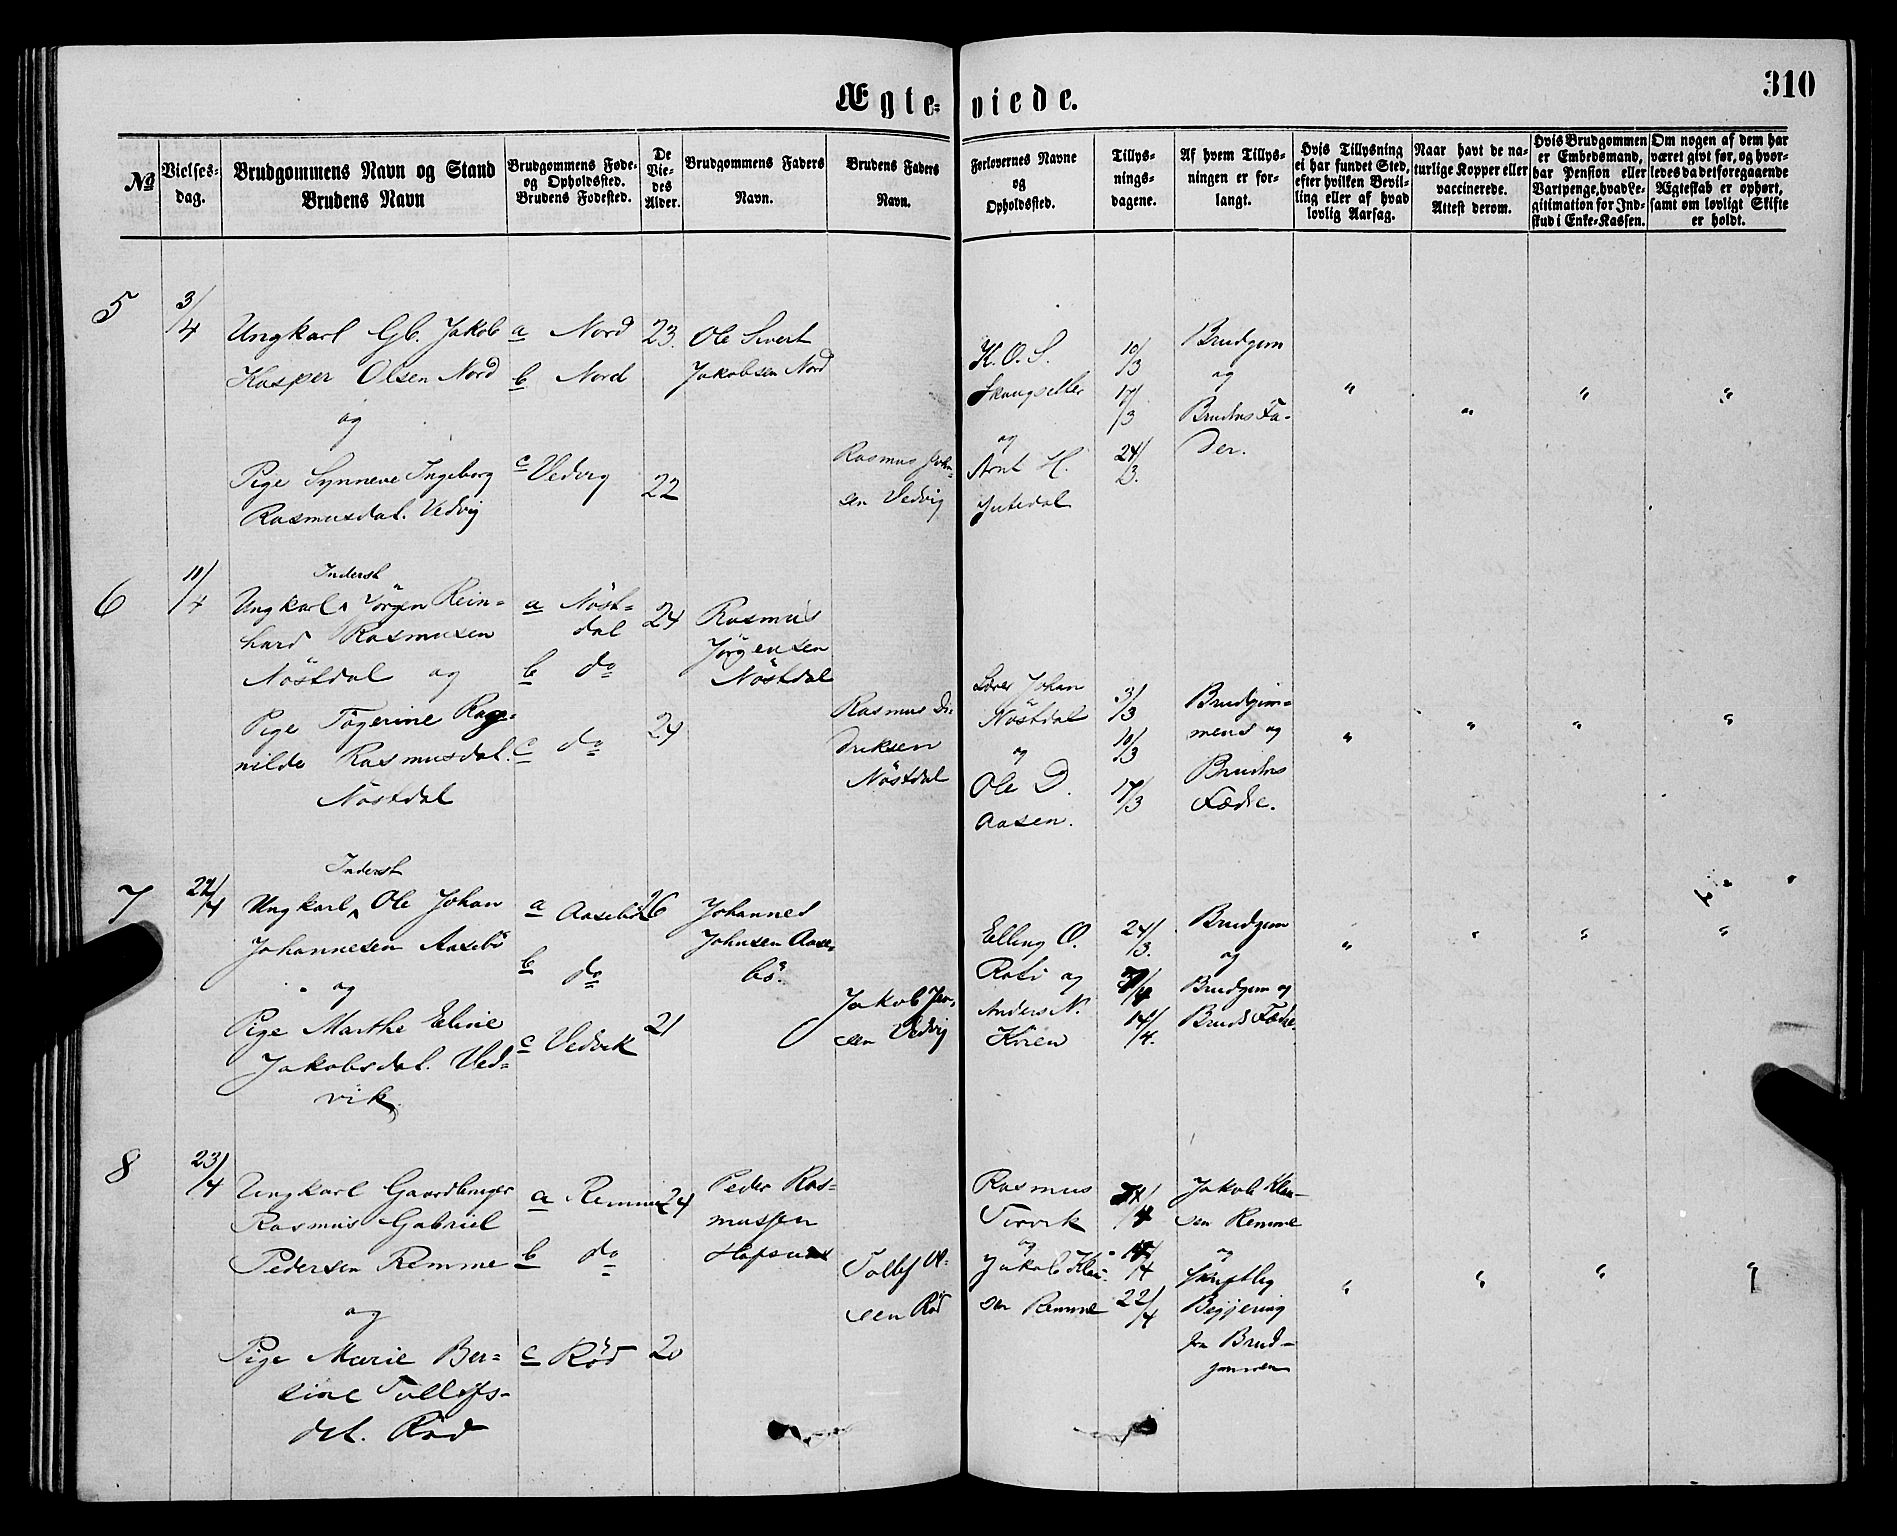 310
Ægte-viede.
No
Vielses-
dag.
Brudgommens Navn og Stand
Brudens Navn
Brudgommens Føde-
og Opholdssted.
Brudens Fødested.
De
Vie-
des
Alder.
Brudgommens Faders
Navn.
Brudens Faders
Navn.
Forlovernes Navne
og
Opholdssted.
Tillys-
nings-
dagene.
Af hvem Tillys-
ningen er for-
langt.
Hvis Tillysning
ei har fundet Sted,
efter hvilken Bevil-
ling eller af hvad
lovlig Aarsag.
Naar havt de na-
turlige Kopper eller
vaccinerede.
Attest derom.
Hvis Brudgommen
er Embedsmand,
har Pension eller
Vartpenge, hvad Le-
gitimation for Ind-
skud i Enke-Kassen.
Om nogen af dem har
været givt før, og hvor-
ledes da det foregaaende
Ægteskab er ophørt,
samt om lovligt Skifte
er holdt.
5
3/4
Ungkarl Gb. Jakob
Kasper Olsen Nord
og
Pige Synneve Ingeborg
Rasmusdat. Vedvig
a Nord
b Nord
c Vedvig
23.
22
Ole Sivert
Jakobsen Nord
Rasmus John-
sen Vedvig
K. O. S.
Skougseller
og
Arnt H.
Indedal
10/3
17/3
24/3.
Brudgom
og
Brudens Fa-
der.
" " " "
6
11/4
Inderst
Ungkarl ^ Jörgen Rein-
hard Rasmusen
Nöstdal og
Pige Tögerine Rag-
nilde Rasmusdat.
Nöstdal
a Nöst-
dal
b do
c do
24
24
Rasmus
Jörgensen
Nöstdal
Rasmus Di-
driksen
Nöstdal
Lærer Johan
Nöstdal
og
Ole D.
Aasen.
3/3
10/3
17/3
Brudgom-
mens og
Brudens
Fædre.
" " " "
7
22/4
Inderst
Ungkarl ^ Ole Johan
Johannesen Aasebö
og
Pige Marthe Eline
Jakobsdat. Ved-
vik
a Aasebö
b do
c Vedvik
26
21
Johannes
Johnsen Aase-
bö.
Jakob Jan-
sen Vedvig
Elling O.
Rotö og
Anders N.
Kvien
24/3.
7/4
14/4.
Brudgom
og
Brudgom og
Bruds Fædre.
" " " "
8
23/4
Ungkarl Gaardbruger
Rasmus Gabriel
Pedersen Remme
og
Pige Marie Ber-
sine Tollefs-
dat. Röd
a Remme
b do
c Röd
24
20
Peder Ras-
mussen
Hofsnæs
Tollef A.
sen Röd
Rasmus
Torvik
og
Jakob Klau-
sen Remme
7/4
14/4
22/4
Jakob Klau-
sen Remme
og
skriftlig
Begjering
fra Brud-
gommen
" " " "